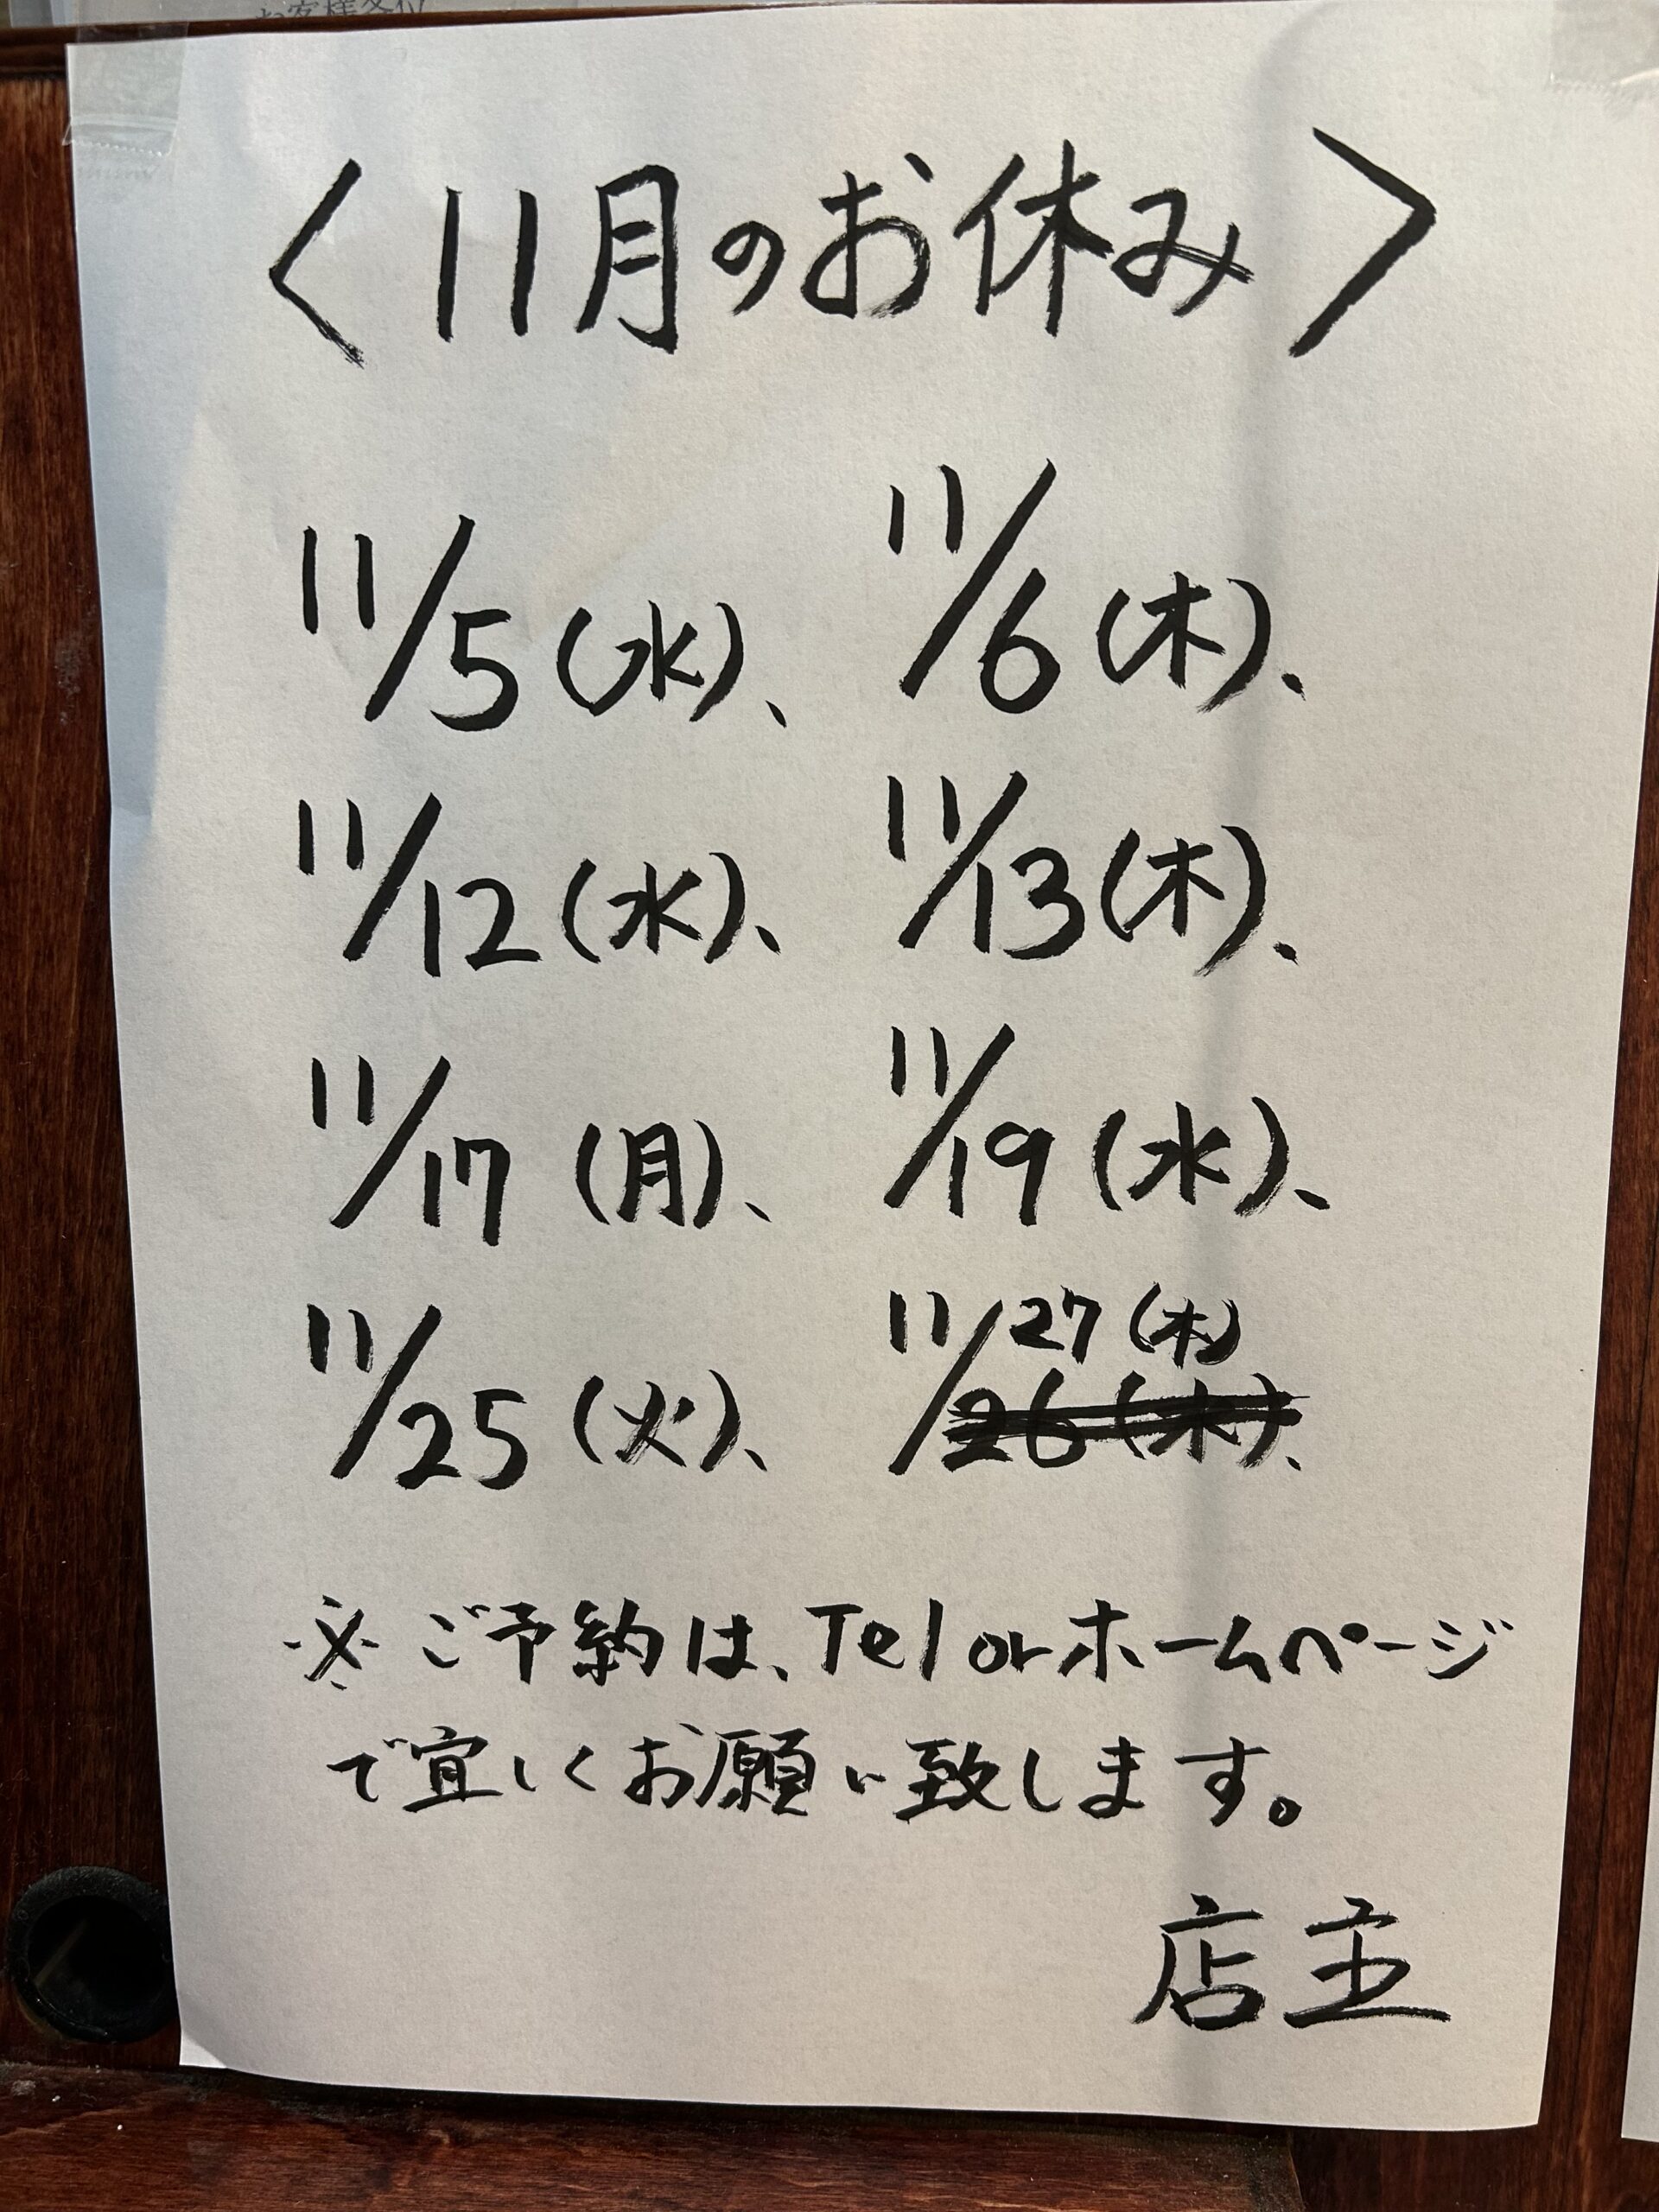 <11月のお休み>
11/5(水)、 11/6(木)、
11/12(水)、 11/13(木)、
11/17(月)、 11/19(水)、
11/25(火)、 11/27(木)
26(木)、
※ご予約は、Tel orホームページ
で宜しくお願い致します。
店主